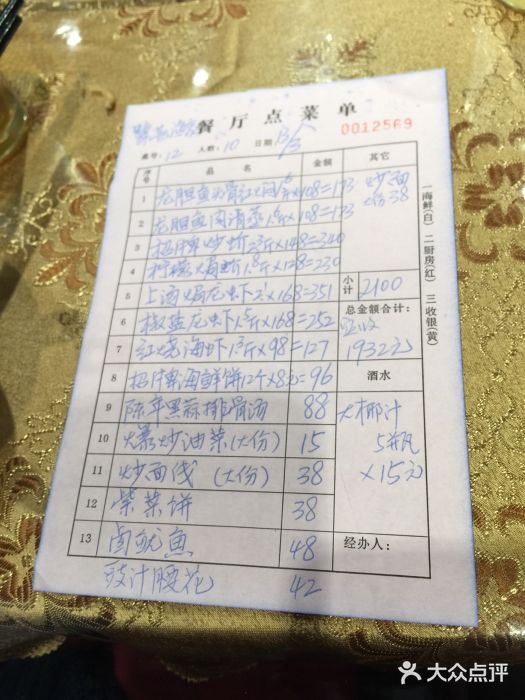 餐厅点菜单
0012569
桌号：12 人数：10 日期：13/3
序号 品名 金额 其它
1 龙胆鱼头骨红焖1.6斤×108=173 炒面
2 龙胆鱼肉清蒸1.6斤×108=173 1份38
3 招牌炒蚧2.3斤×148=340
4 柠檬焗蚧1.8斤×128=230
5 上汤焗龙虾2.1×168=351 小计 2100
6 椒盐龙虾1.5斤×168=252 总金额合计：
7 红烧海虾1.3斤×98=127 实收 1932元
8 招牌海鲜饼12个×8元=96 酒水
9 陈年黑蒜排骨汤 88 大椰汁
10 爆炒油菜(大份) 15 5瓶
11 炒面线 (大份) 38 ×15元
12 紫菜饼 38
13 卤鱿鱼 48 经办人：
豉汁腰花 42
一海鲜(白) 二厨房(红) 三收银(黄)
大众点评